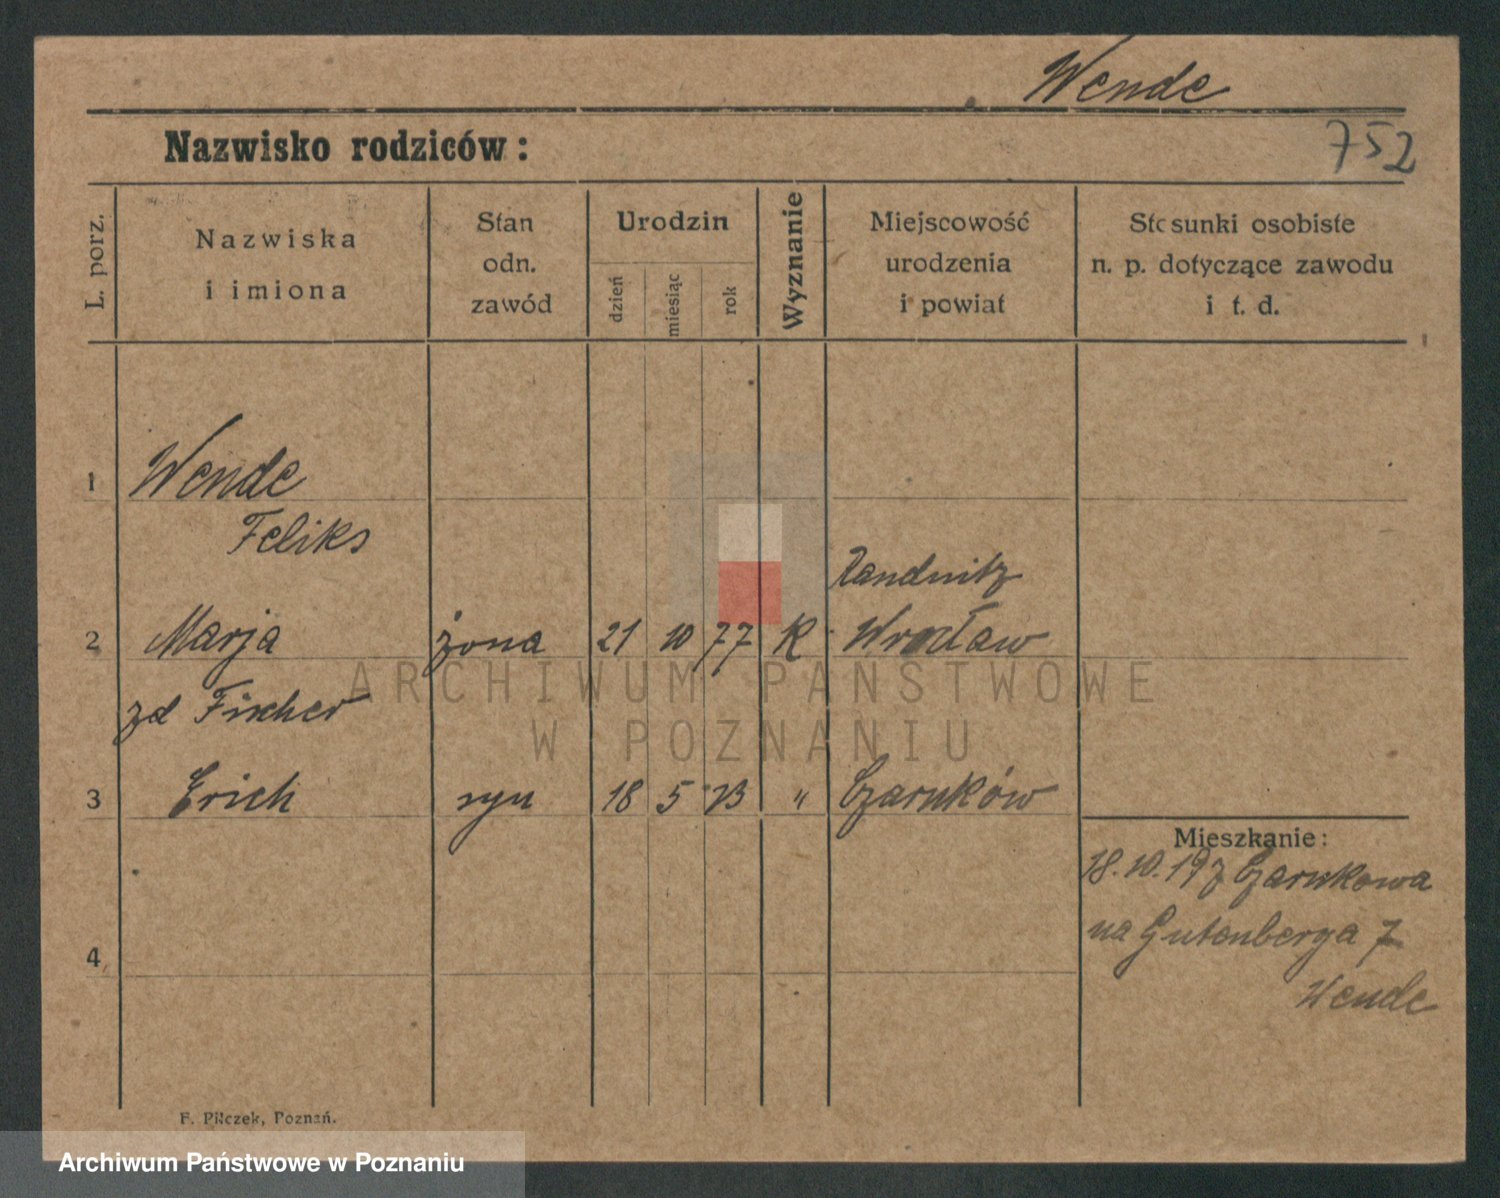 Wende
Nazwisko rodziców:
752
L. porz.
Nazwiska
i imiona
Stan
odn.
zawód
Urodzin
dzień
miesiąc
rok
Wyznanie
Miejscowość
urodzenia
i powiat
Stosunki osobiste
n. p. dotyczące zawodu
i t. d.
1 Wende
Feliks
Randnitz
2 Marja żona 21 10 77 K Wrocław
zd Fischer
3 Erich syn 18 5 " Czarnków
Mieszkanie:
18.10.19 z Czarnkowa
na Gutenberga 7
Wende
4
F. Pilczek, Poznań.
ARCHIWUM PAŃSTWOWE
W POZNANIU
Archiwum Państwowe w Poznaniu